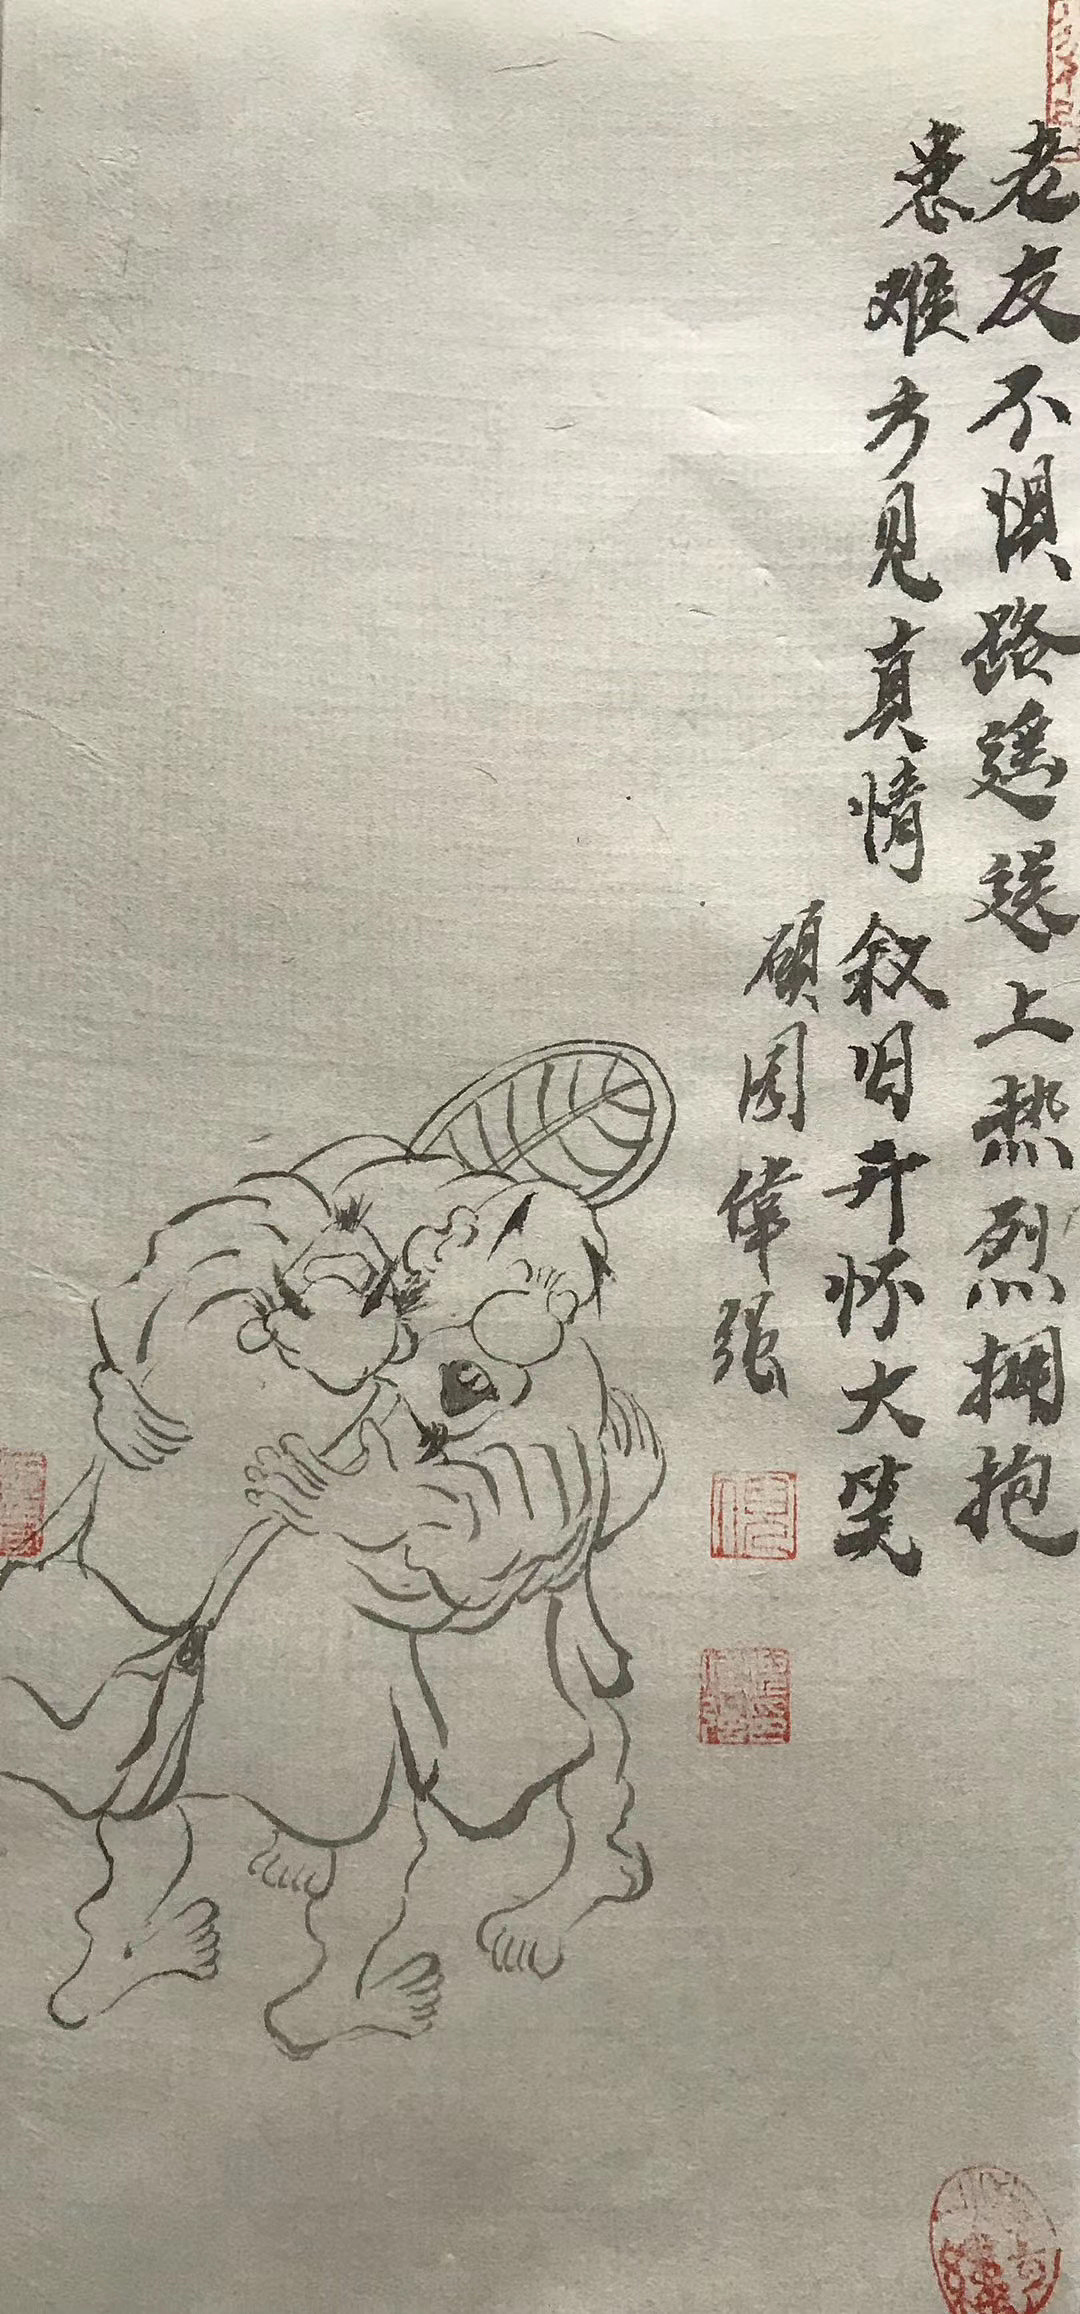 老友不惧路遥送上热烈拥抱
患难方见真情叙旧开怀大笑
硕园伟强